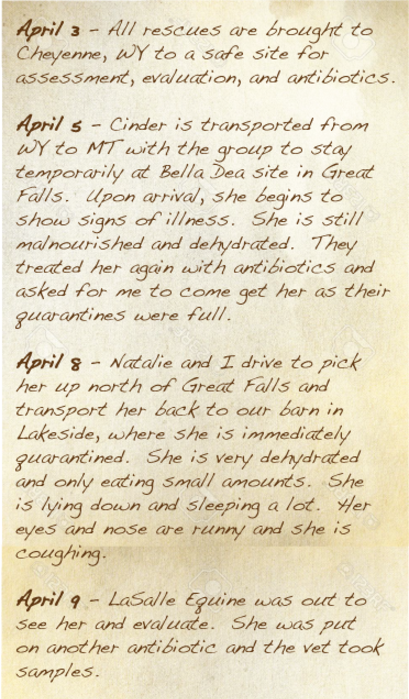 April 3 - All rescues are brought to
Cheyenne, WY to a safe site for
assessment, evaluation, and antibiotics.
April 5 - Cinder is transported from
WY to MT with the group to stay
temporarily at Bella Dea site in Great
Falls. Upon arrival, she begins to
show signs of illness. She is still
malnourished and dehydrated. They
treated her again with antibiotics and
asked for me to come get her as their
quarantines were full.
April 8 - Natalie and I drive to pick
her up north of Great Falls and
transport her back to our barn in
Lakeside, where she is immediately
quarantined. She is very dehydrated
and only eating small amounts. She
is lying down and sleeping a lot. Her
eyes and nose are runny and she is
coughing.
April 9 - LaSalle Equine was out to
see her and evaluate. She was put
on another antibiotic and the vet took
samples.